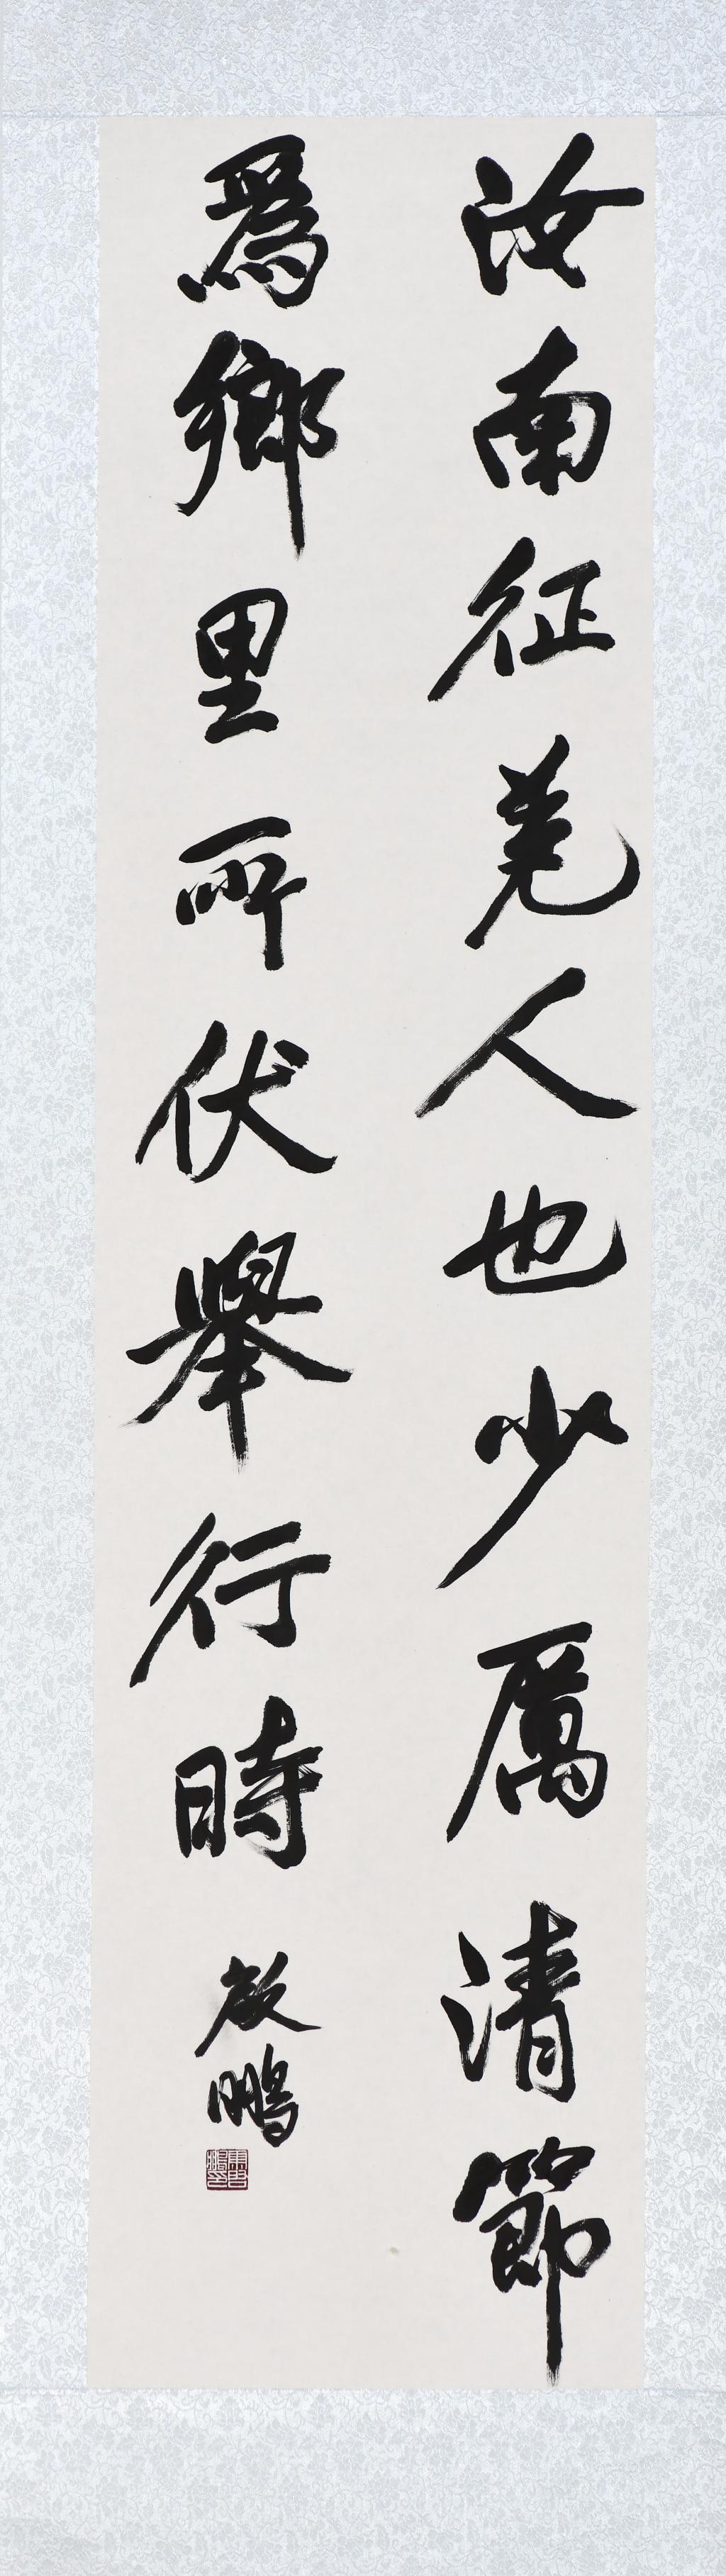 汝南征羌人也少厲清節
爲鄉里所伏舉行時
啟鵬